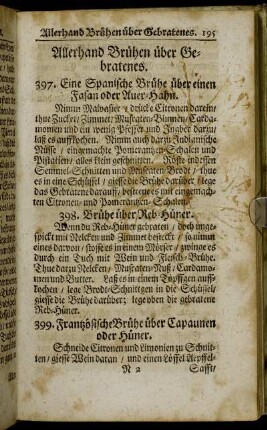 Allerhand Brühen über Gebratenes. 195
Allerhand Brühen über Ge-
bratenes.
397. Eine Spanische Brühe über einen
Fasan oder Auer-Hahn.
Nimm Malvasier / drücke Citronen darein /
thue Zucker / Zimmet / Muskaten-Blumen / Carda-
momen und ein wenig Pfeffer und Ingber darin /
laß es aufkochen. Nimm auch darzu Indianische
Nüsse / eingemachte Pomeranzen-Schalen und
Pistatien / alles klein geschnitten. Röste indessen
Semmel-Schnitten und Brodt / thue
es in eine Schüssel / giesse die Brühe darüber / lege
das Gebratene darauf / bestreue es mit eingemach-
ten Citronen- und Pomeranzen-Schalen.
398. Brühe über Reb-Hüner.
Wenn du Reb-Hüner gebraten / doch unge-
spickt mit Nelcken und Zimmet besteckt / so nimm
eines darvon / stosse es in einem Mörser / zwinge es
durch ein Tuch mit Wein und Fleisch-Brühe.
Thue darzu Nelcken / Muskaten-Nuß / Cardamo-
men und Butter. Laß es in einem Töpffgen auff-
kochen / lege Brodt-Schnittgen in die Schüssel /
giesse die Brühe darüber; lege oben die gebratene
Reb-Hüner.
399. Französische Brühe über Capaunen
oder Hüner.
Schneide Citronen und Limonien zu Schnit-
ten / giesse Wein daran / und einen Löffel Aepffel-
N 2 Safft /